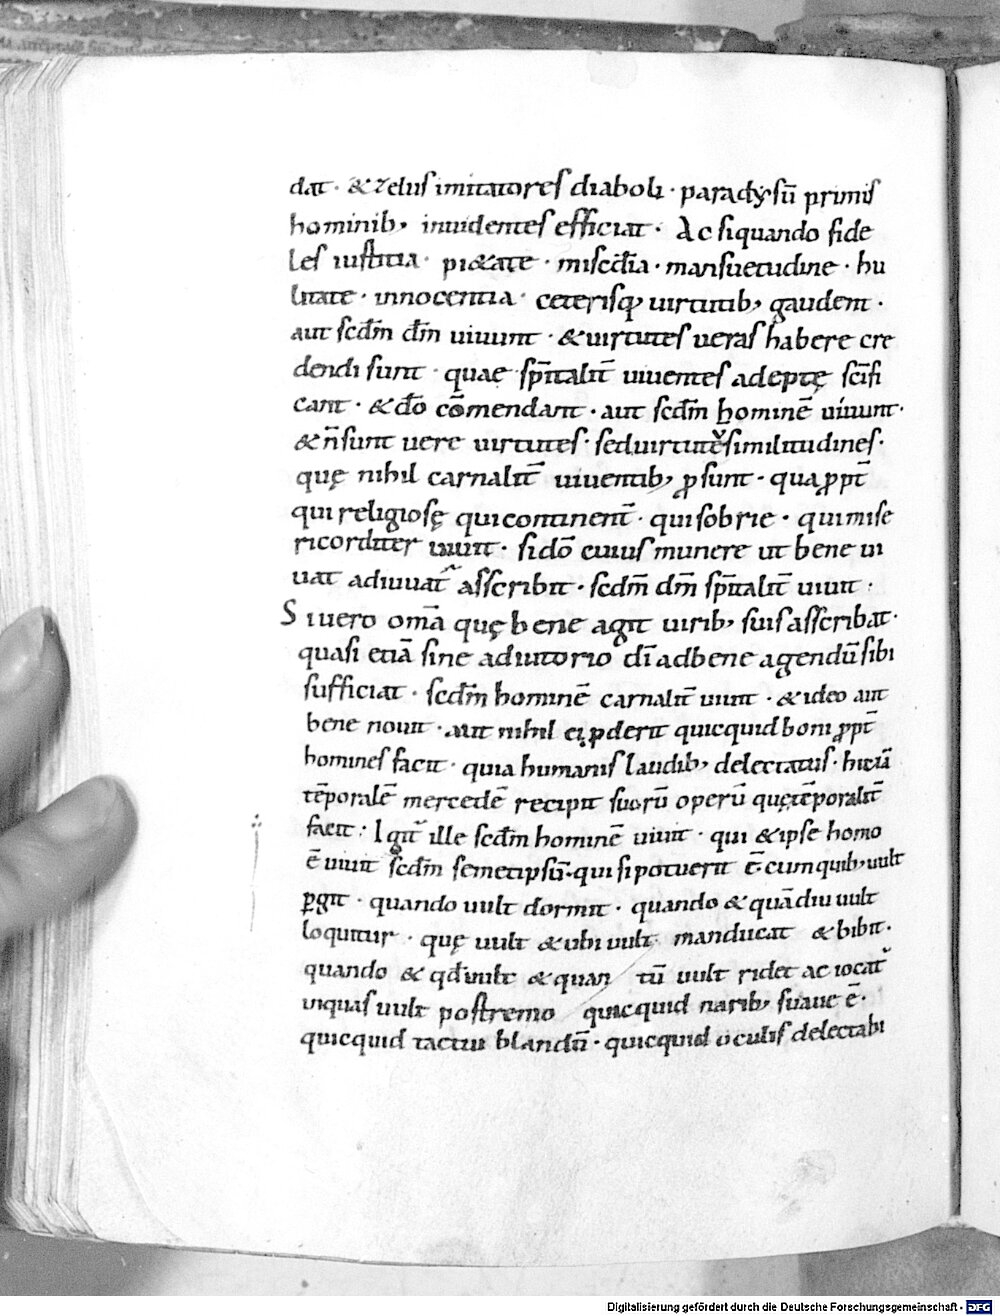 dat · & zelus imitatores diaboli · paradysū primis
hominib; inuidentes efficiat · Ac siquando fide
les iustitia · pi&ate · mis̄cdia · mansuetudine · hu
litate · innocentia · ceterisq; uirtutib; gaudent ·
aut scdm̄ dm̄ uiuunt · & uirtutes ueras habere cre
dendi sunt · quae sp̄italit̄ uiuentes adeptę sc̄ifi
cant · & dō cōmendant · aut scdm̄ hominē uiuunt ·
& n̄ sunt uere uirtutes · sed uirtutē similitudines ·
quę nihil carnalit̄ uiuentib; ꝓsunt · qua ꝓpt̄
qui religiosę qui continent̄ · qui sobrie · qui mise
ricorditer uiuit · si dō cuius munere ut bene ui
uat adiuuat᷑ asscribit · scdm̄ dm̄ sp̄italit̄ uiuit :
Si uero om̄a quę bene agit uirib; suis asscribat ·
quasi etiā sine adiutorio dī ad bene agendū sibi
sufficiat · scdm̄ hominē carnalit̄ uiuit · & ideo aut
bene nouit · aut nihil ei ꝑderit quicquid boni ꝓpt̄
homines facit · quia humanis laudib; delectatus · hic iā
tēporalē mercedē recipit suorū operū quę tēporalit̄
facit : Igit᷑ ille scdm̄ hominē uiuit · qui & ipse homo
ē uiuit scdm̄ semetipsū · qui si potuerit ē · cum quib; uult
ꝑgit · quando uult dormit · quando & quādiu uult
loquitur · quę uult & ubi uult manducat & bibit ·
quando & qd̄ uult & quan tū uult ridet ac iocat᷑
uiquas uult postremo quicquid narib; suaue ē ·
quicquid tactui blandū · quicquid oculis delectabi
Digitalisierung gefördert durch die Deutsche Forschungsgemeinschaft - DFG